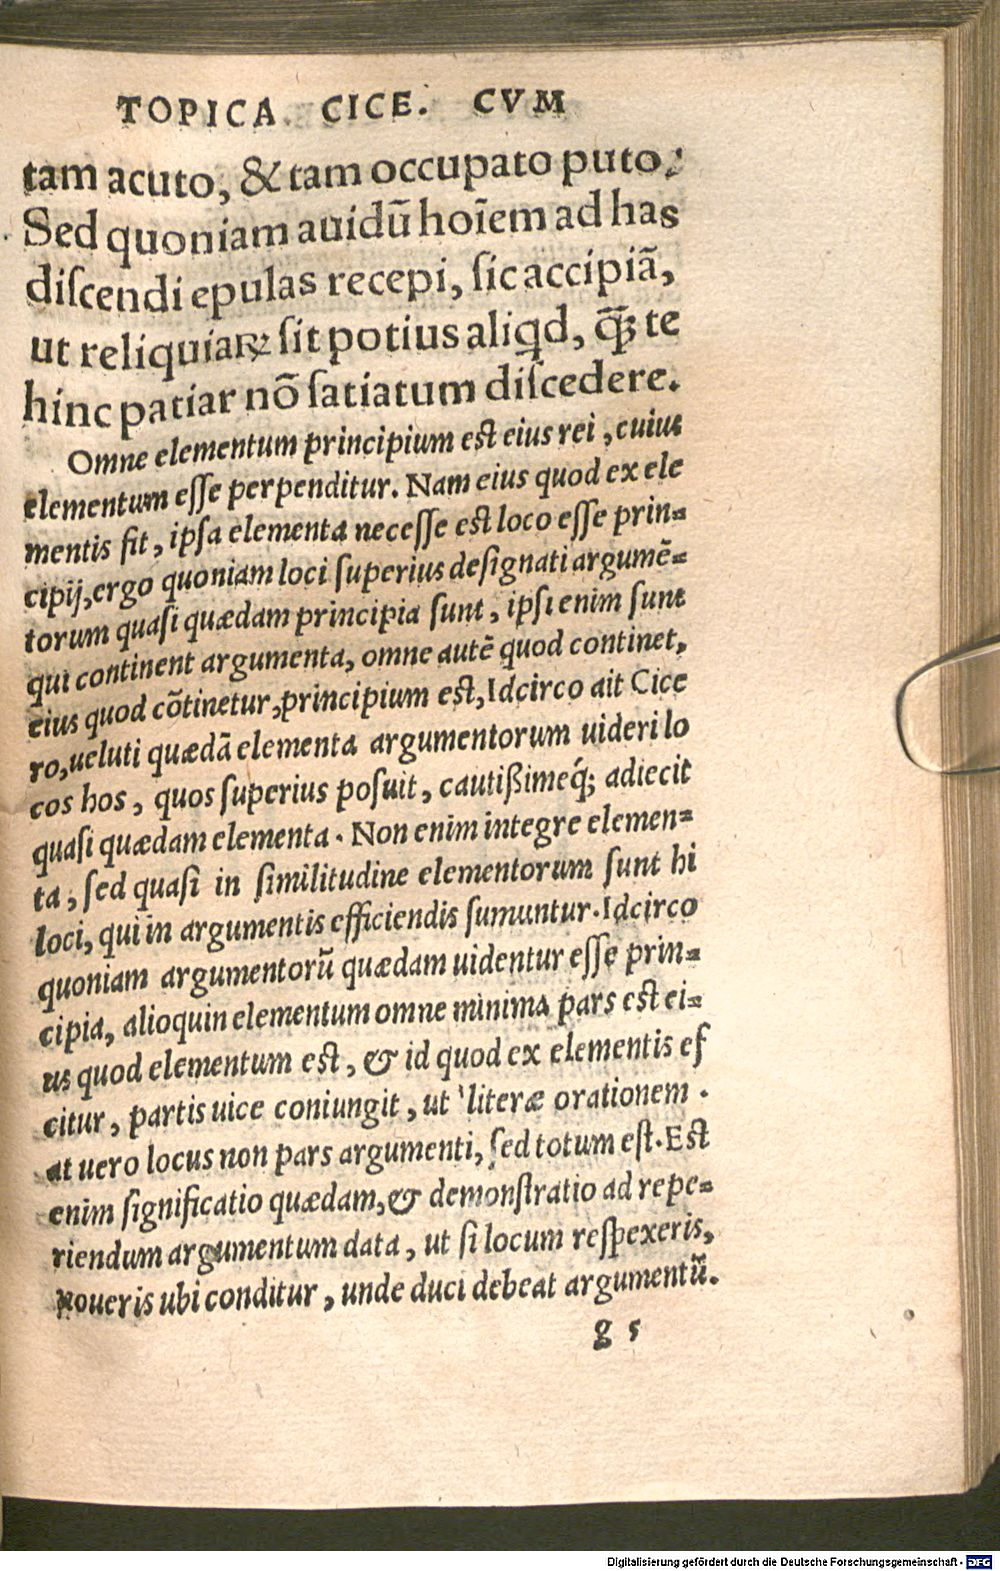 TOPICA CICE. CVM
tam acuto, & tam occupato puto,
Sed quoniam auidũ hoĩem ad has
diſcendi epulas recepi, ſic accipiã,
ut reliquiaꝝ ſit potius aliqd, ꝙ̃ te
hinc patiar nõ ſatiatum diſcedere.
Omne elementum principium eſt eius rei, cuius
elementum eſſe perpenditur. Nam eius quod ex ele
mentis fit, ipſa elementa neceſſe eſt loco eſſe prin-
cipij, ergo quoniam loci ſuperius deſignati argumẽ-
torum quaſi quædam principia ſunt, ipſi enim ſunt
qui continent argumenta, omne autẽ quod continet,
eius quod cõtinetur, principium eſt, Idcirco ait Cice
ro, ueluti quædã elementa argumentorum uideri lo
cos hos, quos ſuperius poſuit, cautißimeq́; adiecit
quaſi quædam elementa. Non enim integre elemen-
ta, ſed quaſi in ſimilitudine elementorum ſunt hi
loci, qui in argumentis efficiendis ſumuntur. Idcirco
quoniam argumentorũ quædam uidentur eſſe prin-
cipia, alioquin elementum omne minima pars eſt ei-
us quod elementum eſt, & id quod ex elementis ef
citur, partis uice coniungit, ut literæ orationem.
at uero locus non pars argumenti, ſed totum eſt. Eſt
enim ſignificatio quædam, & demonſtratio ad repe-
riendum argumentum data, ut ſi locum reſpexeris,
noueris ubi conditur, unde duci debeat argumentũ.
g 5
Digitalisierung gefördert durch die Deutsche Forschungsgemeinschaft - DFG